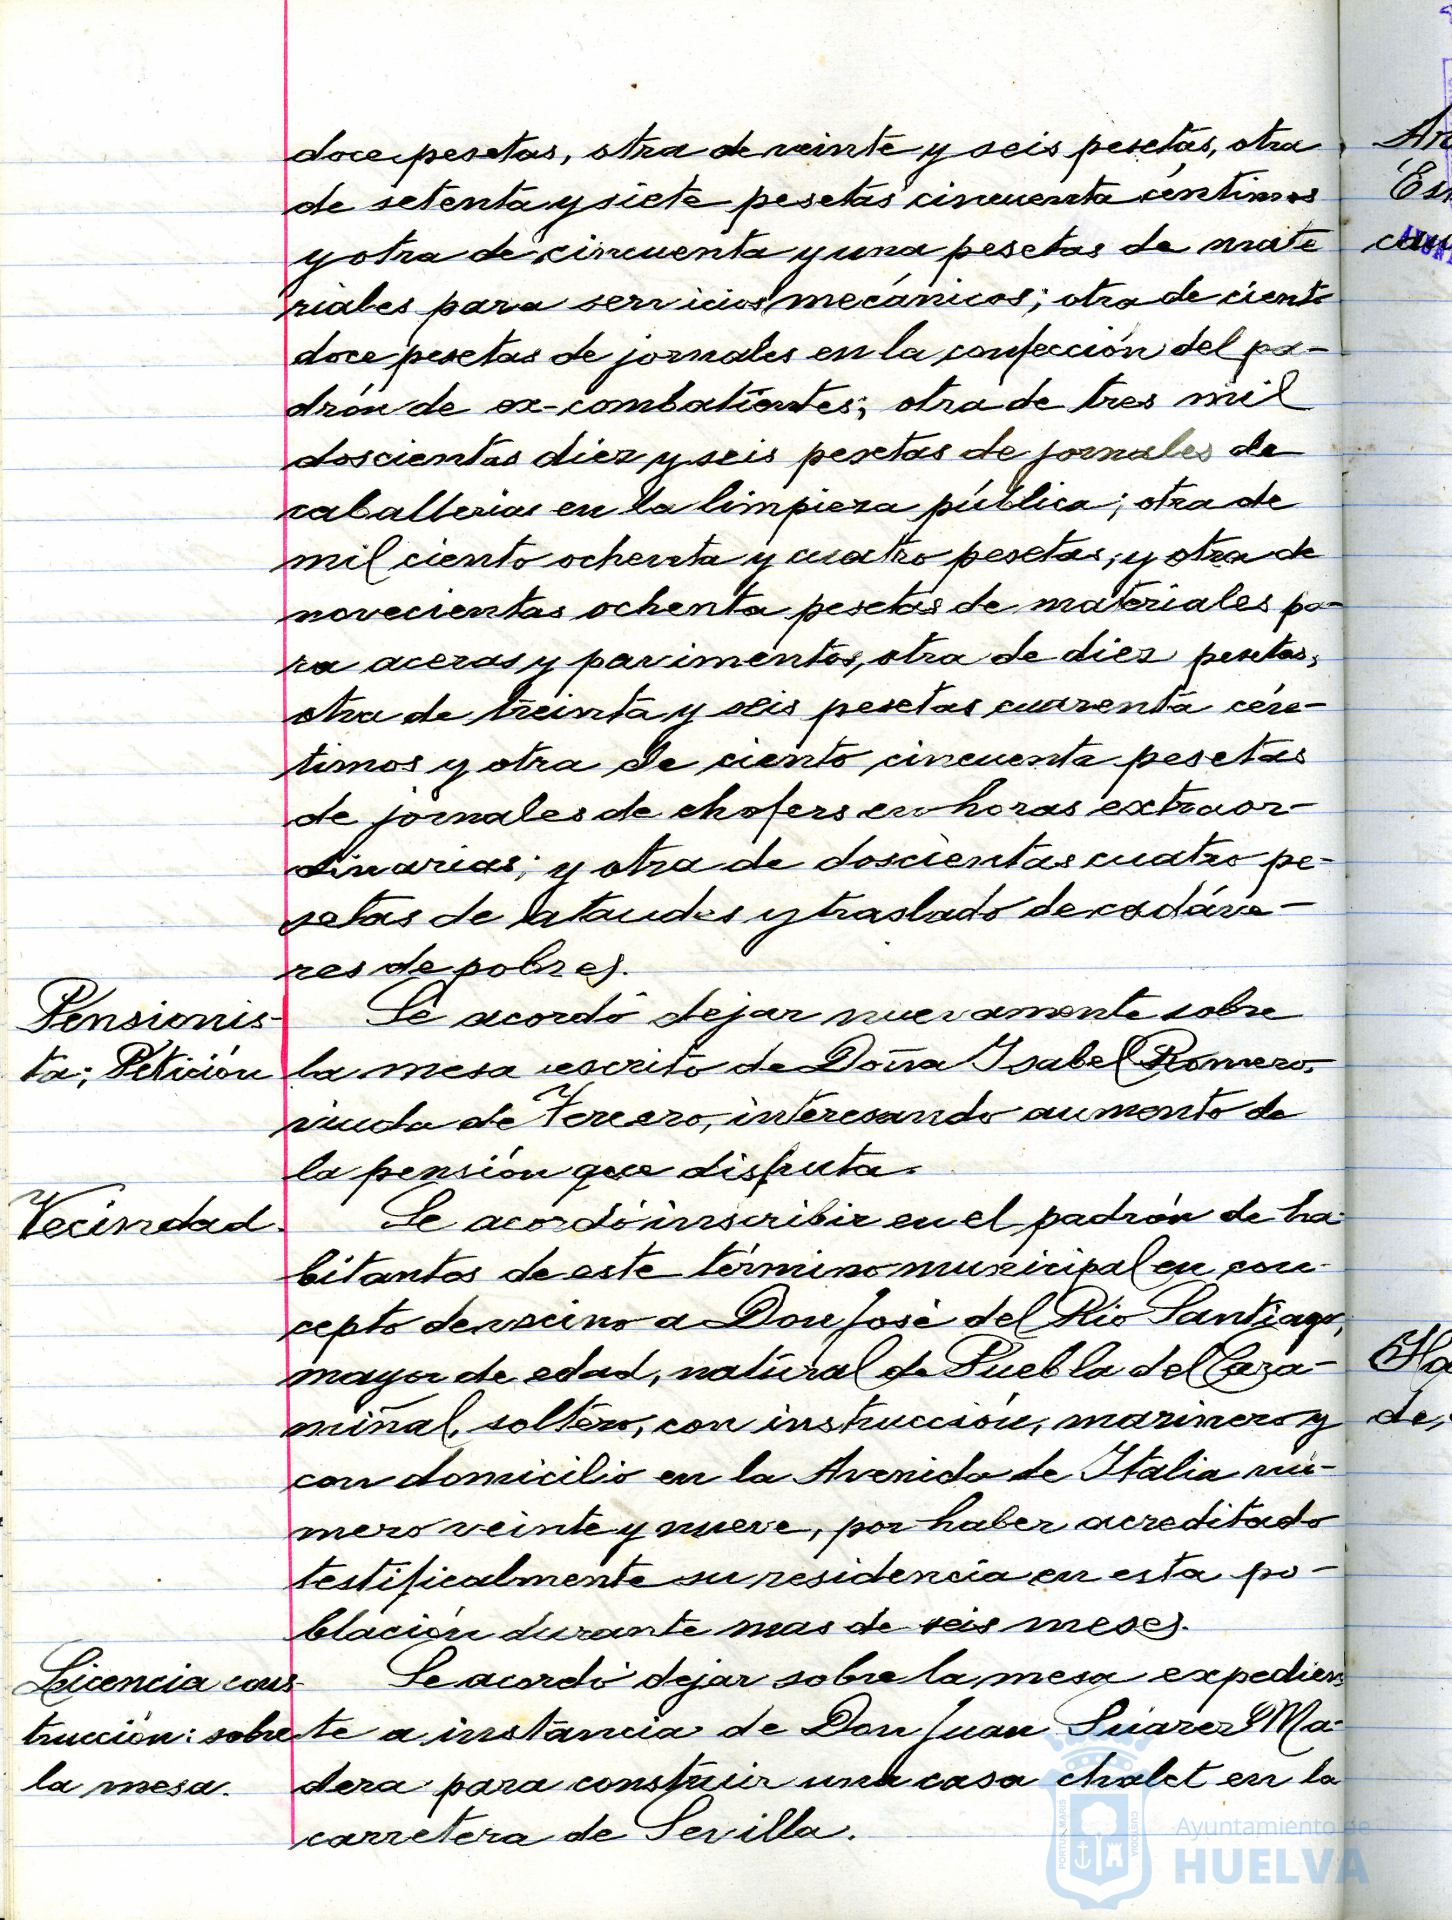 doce pesetas, otra de veinte y seis pesetas, otra
de setenta y siete pesetas cincuenta céntimos
y otra de cincuenta y una pesetas de mate
riales para servicios mecánicos; otra de ciento
doce pesetas de jornales en la confección del pa-
drón de ex-combatientes; otra de tres mil
doscientas diez y seis pesetas de jornales de
caballerias en la limpieza pública; otra de
mil ciento ochenta y cuatro pesetas, y otra de
novecientas ochenta pesetas de materiales pa-
ra aceras y pavimentos, otra de diez pesetas,
otra de treinta y seis pesetas cuarenta cén-
timos y otra de ciento cincuenta pesetas
de jornales de chofers en horas extraor-
dinarias; y otra de doscientas cuatro pe-
setas de ataudes y traslado de cadáve-
res de pobres.
Pensionis-
ta; Petición
Se acordó dejar nuevamente sobre
la mesa escrito de Doña Isabel Romero,
viuda de Tercero, interesando aumento de
la pensión que disfruta.
Vecindad.
Se acordó inscribir en el padrón de ha-
bitantes de este término municipal en con-
cepto de vecino a Don José del Rio Santiago,
mayor de edad, natural de Puebla del Cara-
miñal, soltero, con instrucción, marinero y
con domicilio en la Avenida de Italia nú-
mero veinte y nueve, por haber acreditado
testificalmente su residencia en esta po-
blación durante mas de seis meses.
Licencia cons-
trucción: sobre
la mesa.
Se acordó dejar sobre la mesa expedien
te a instancia de Don Juan Suarez Ma-
dera para construir una casa chalet en la
carretera de Sevilla.
Ayuntamiento de
HUELVA